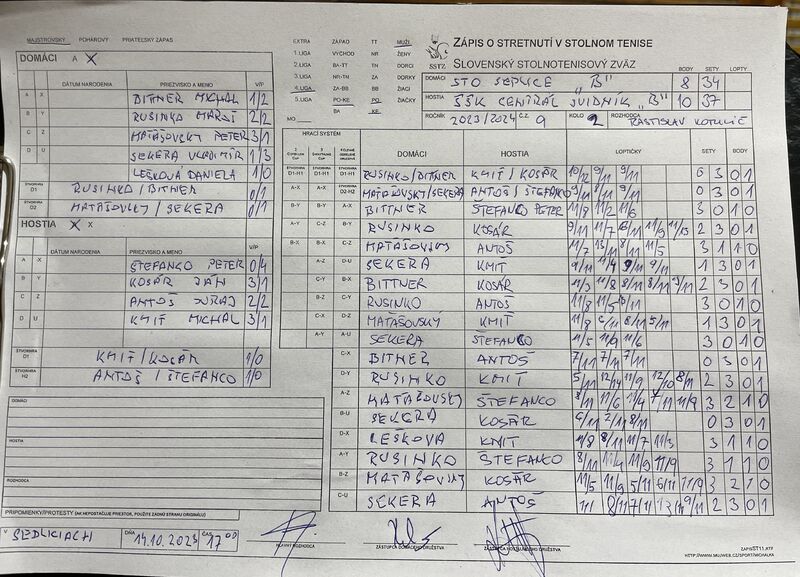 MAJSTROVSKÝ POHÁROVÝ PRIATEĽSKÝ ZÁPAS
EXTRA ZÁPAD TT MUŽI
1.LIGA VÝCHOD NR ŽENY
2.LIGA BA-TT TN DORCI
3.LIGA NR-TN ZA DORKY
4.LIGA ZA-BB BB ŽIACI
5.LIGA PO-KE PO ŽIAČKY
MO BA KE
SSTZ
ZÁPIS O STRETNUTÍ V STOLNOM TENISE
SLOVENSKÝ STOLNOTENISOVÝ ZVÄZ
BODY SETY LOPTY
DOMÁCI STO SEDLICE "B" 8 34
HOSTIA ŠŠK CENTRÁL SVIDNÍK "B" 10 37
ROČNÍK 2023/2024 Č.Z. 9 KOLO 2 ROZHODCA RASTISLAV
DOMÁCI A X
DÁTUM NARODENIA PRIEZVISKO A MENO V/P
A X BITTNER MICHAL 1/2
B Y RUSINKO MAROŠ 2/2
C Z MATAŠOVSKÝ PETER 3/1
D U SEKERA VLADIMÍR 1/3
LEŠKOVÁ DANIELA 1/0
ŠTVORHRA D1 RUSINKO/BITTNER 0/1
ŠTVORHRA D2 MATAŠOVSKY/SEKERA 0/1
HOSTIA X X
DÁTUM NARODENIA PRIEZVISKO A MENO V/P
A X ŠTEFANCO PETER 0/4
B Y KOSÁR JÁN 3/1
C Z ANTOŠ JURAJ 2/2
D U KMIŤ MICHAL 3/1
ŠTVORHRA D1 KMIŤ/KOSÁR 1/0
ŠTVORHRA H2 ANTOŠ/ŠTEFANCO 1/0
DOMÁCI
HOSTIA
ROZHODCA
HRACÍ SYSTÉM DOMÁCI HOSTIA LOPTIČKY SETY BODY
D1-H1 D1-H1 RUSINKO/BITTNER KMIŤ/KOSÁR 10/12 9/11 9/11 0 3 0 1
A-X A-X D2-H2 MATAŠOVSKY/SEKERA ANTOŠ/ŠTEFANCO 9/11 8/11 9/11 0 3 0 1
B-Y B-Y A-X BITTNER ŠTEFANCO PETER 11/8 11/2 11/6 3 0 1 0
A-Y C-Z B-Y RUSINKO KOSÁR 9/11 11/7 11/9 11/13 2 3 0 1
B-X B-X C-Z MATAŠOVSKY ANTOŠ 11/7 13/11 8/11 11/5 3 1 1 0
A-Z D-U SEKERA KMIŤ 9/11 11/4 9/11 9/11 1 3 0 1
C-Y B-X BITTNER KOSÁR 11/3 11/8 8/11 8/11 2 3 0 1
B-Z C-Y RUSINKO ANTOŠ 11/8 11/5 3 0 1 0
C-X D-Z MATAŠOVSKY KMIŤ 11/8 8/11 5/11 1 3 0 1
A-Y A-U SEKERA ŠTEFANCO 11/5 11/9 11/6 3 0 1 0
C-X BITNER ANTOŠ 7/11 7/11 7/11 0 3 0 1
D-Y RUSINKO KMIŤ 5/11 12/14 11/9 12/10 8/11 2 3 0 1
A-Z MATAŠOVSKY ŠTEFANCO 8/11 11/6 11/4 7/11 11/9 3 2 1 0
B-U SEKERA KOSÁR 8/11 0 3 0 1
D-X LEŠKOVA KMIT 8/11 11/7 11/3 3 1 1 0
A-Y RUSINKO ŠTEFANCO 8/11 11/4 11/9 11/9 3 1 1 0
B-Z MATAŠOVSKY KOSÁR 11/5 11/9 5/11 6/11 11/9 3 2 1 0
C-U SEKERA ANTOŠ 8/11 9/11 2 3 0 1
PRIPOMIENKY/PROTESTY (AK NEPOSTAČUJE PRIESTOR, POUŽITE ZADNÚ STRANU ORIGINÁLU)
V SEDLICIACH DŇA 14.10.2023 ČAS 17 00
HLAVNÝ ROZHODCA ZÁSTUPCA DOMÁCEHO DRUŽSTVA ZÁSTUPCA HOSŤUJÚCEHO DRUŽSTVA
ZAPISST11.RTF
HTTP://WWW.MUJWEB.CZ/SPORT/MICHALKA